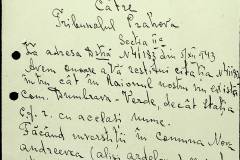 Către
Tribunalul Prahova
Secția IIa
La adresa Dvs № 41183 din 5/XII 1943
Avem onoare a vă restitui citația № 41183
întru cât în Raionul nostru nu există
com. Dumbrava-Verde, decât Stația
c.f.r. cu acelaș nume.
Făcând investiții în comuna Nou
andreevca